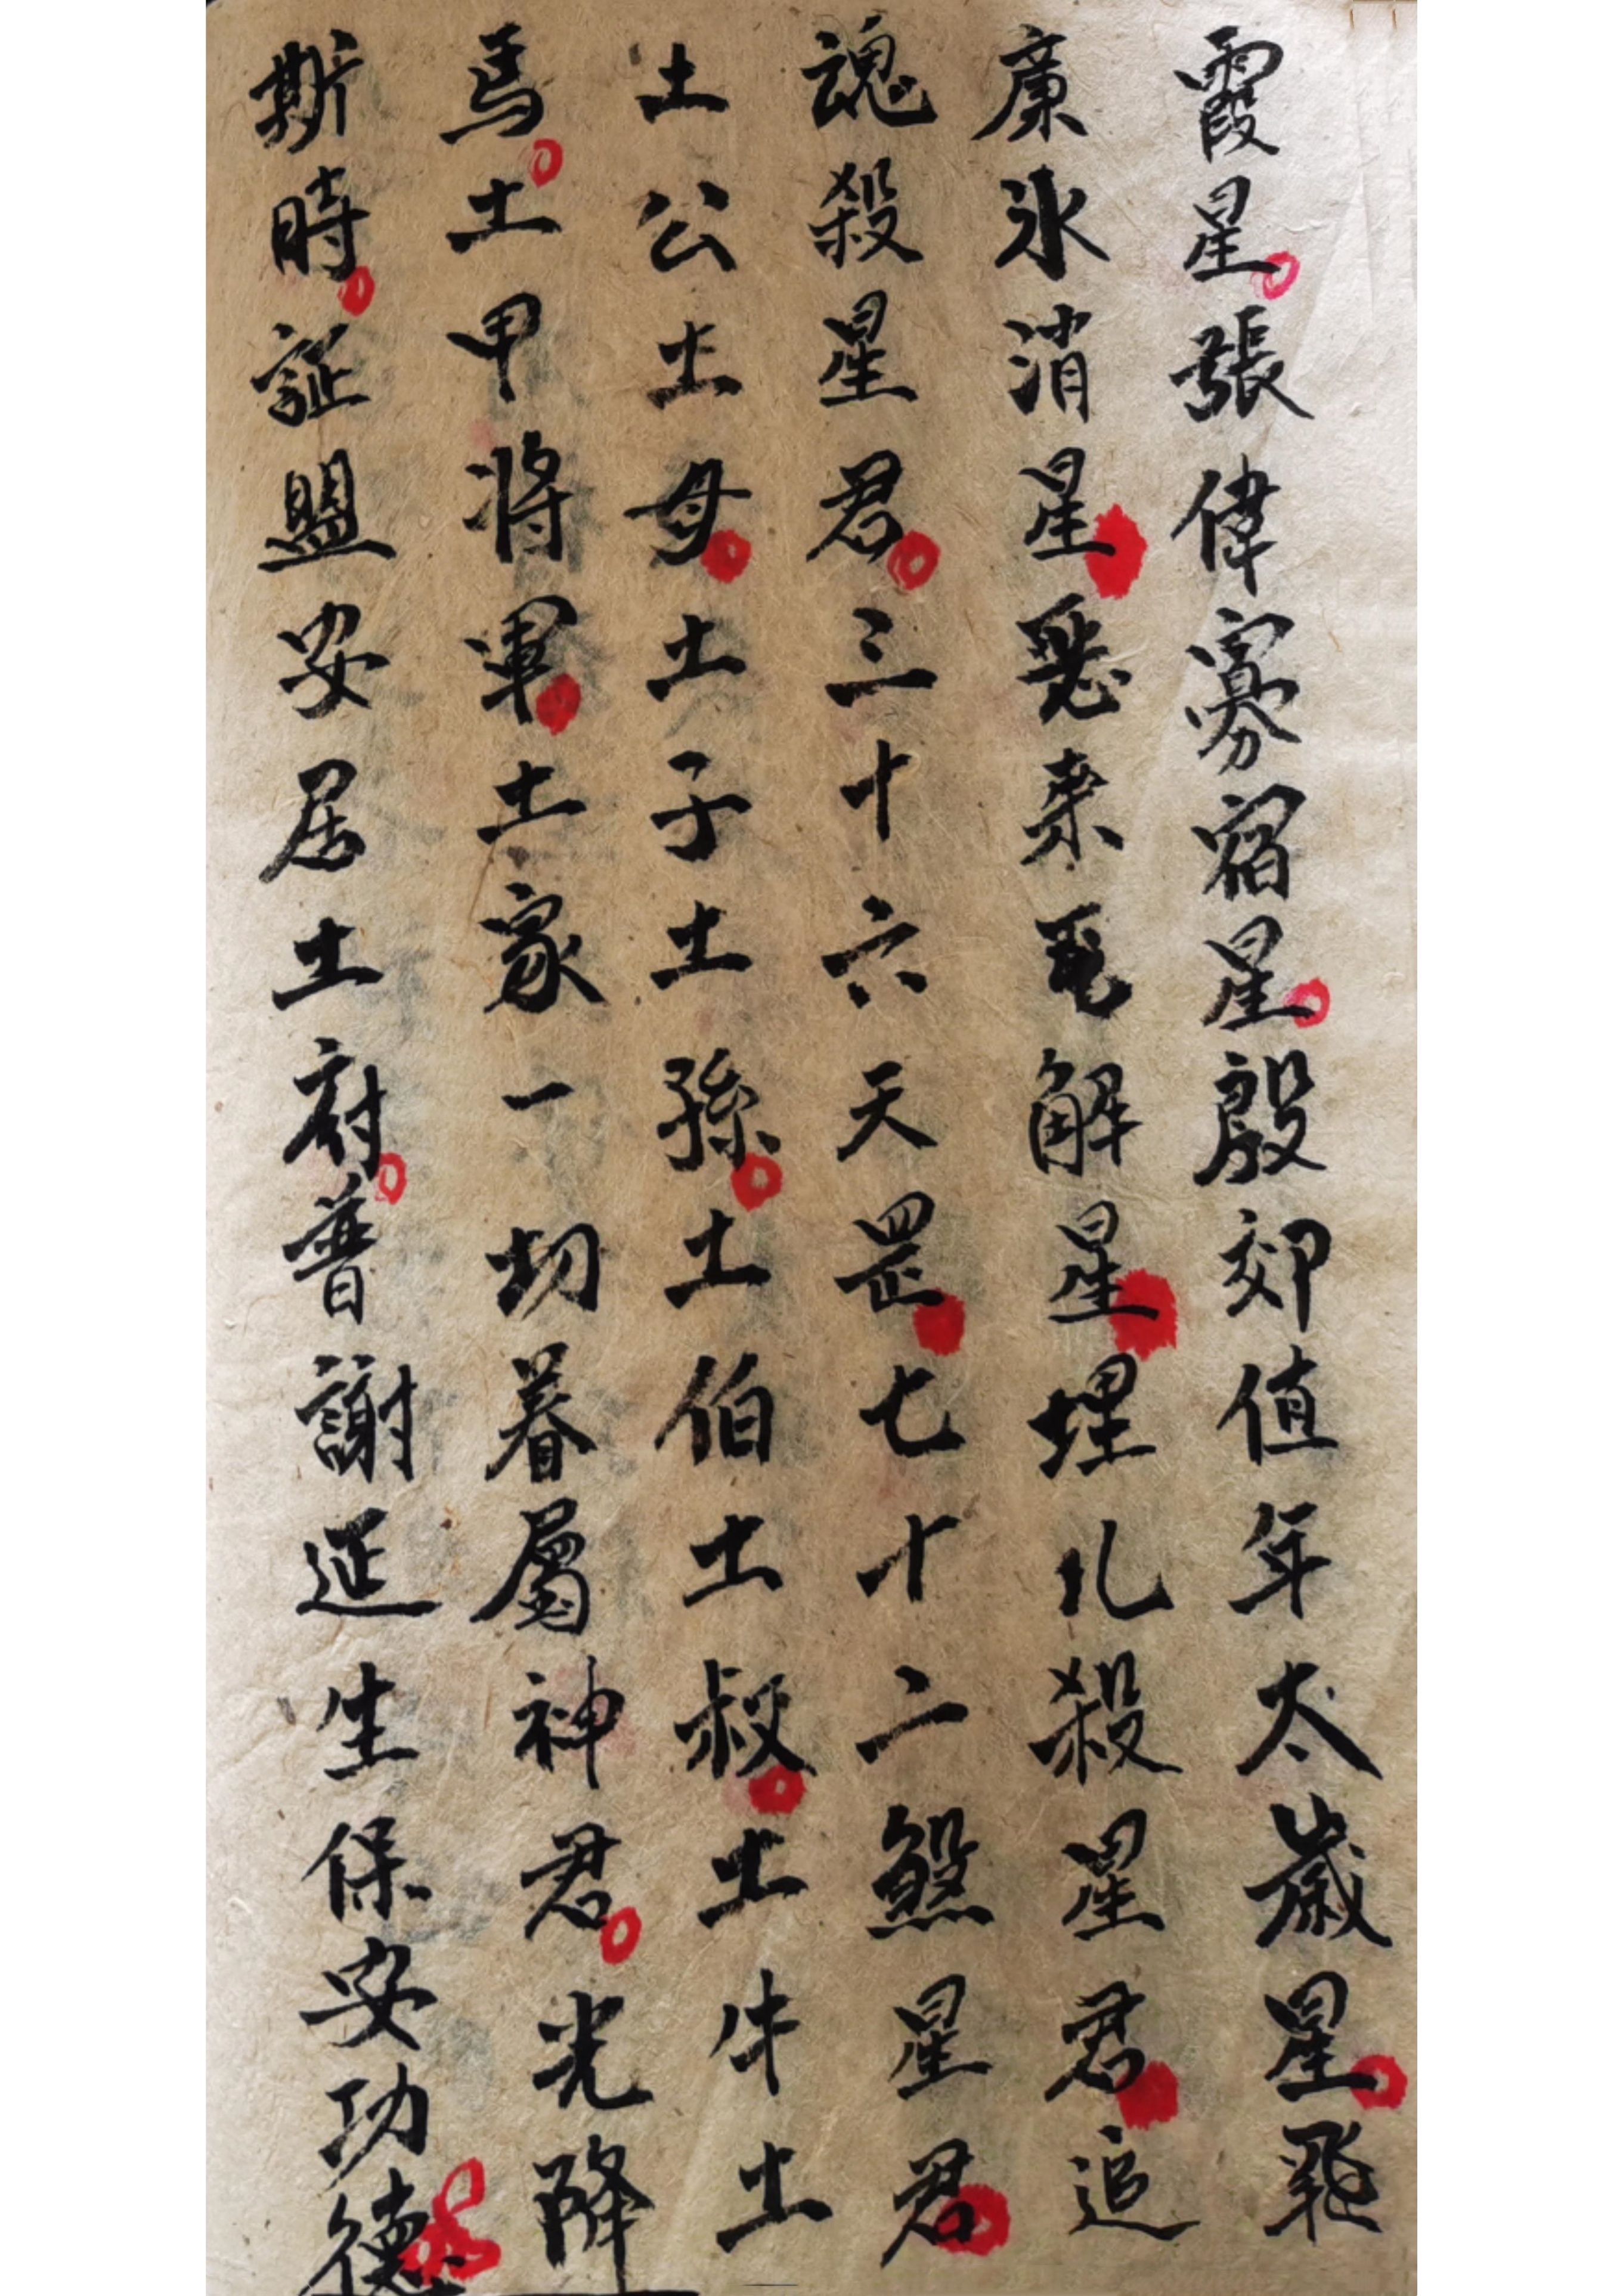 霞星。張偉寡宿星。殷郊值年太歲星。飛
廉氷消星。惡來瓦解星。埋儿殺星君。追
魂殺星君。三十六天罡。七十二煞星君。
土公土母。土子土孫。土伯土叔。土牛土
馬。土甲将軍。土家一切眷屬神君。光降
斯時。証盟安居土府。普謝延生保安功德